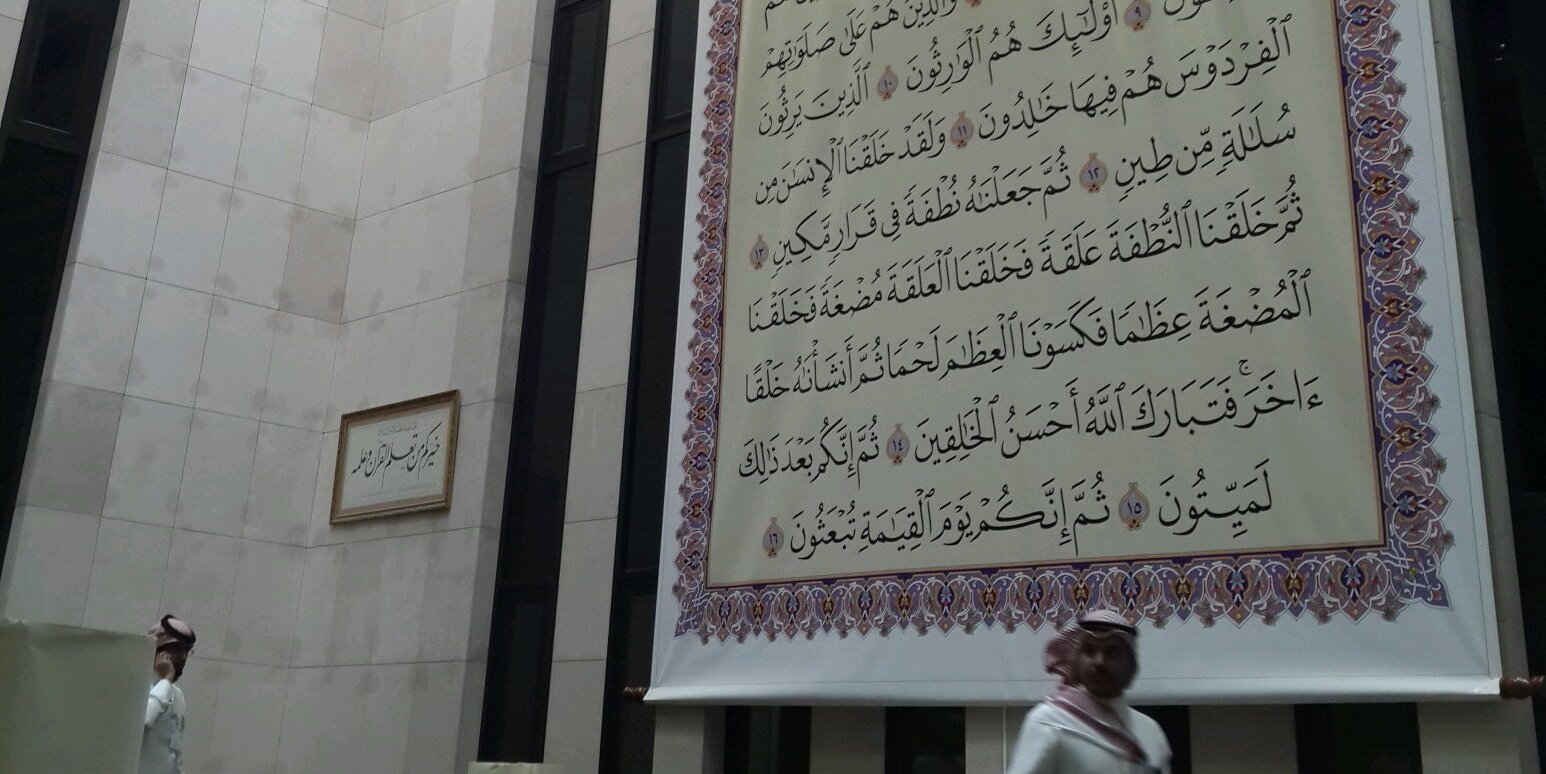 وَٱلَّذِينَ هُمْ عَلَىٰ صَلَوَٰتِهِمْ
٩ أُو۟لَٰٓئِكَ هُمُ ٱلْوَٰرِثُونَ ١٠ ٱلَّذِينَ يَرِثُونَ
ٱلْفِرْدَوْسَ هُمْ فِيهَا خَٰلِدُونَ ١١ وَلَقَدْ خَلَقْنَا ٱلْإِنسَٰنَ مِن
سُلَٰلَةٍ مِّن طِينٍ ١٢ ثُمَّ جَعَلْنَٰهُ نُطْفَةً فِى قَرَارٍ مَّكِينٍ ١٣
ثُمَّ خَلَقْنَا ٱلنُّطْفَةَ عَلَقَةً فَخَلَقْنَا ٱلْعَلَقَةَ مُضْغَةً فَخَلَقْنَا
ٱلْمُضْغَةَ عِظَٰمًا فَكَسَوْنَا ٱلْعِظَٰمَ لَحْمًا ثُمَّ أَنشَأْنَٰهُ خَلْقًا
ءَاخَرَ ۚ فَتَبَارَكَ ٱللَّهُ أَحْسَنُ ٱلْخَٰلِقِينَ ١٤ ثُمَّ إِنَّكُم بَعْدَ ذَٰلِكَ
لَمَيِّتُونَ ١٥ ثُمَّ إِنَّكُمْ يَوْمَ ٱلْقِيَٰمَةِ تُبْعَثُونَ ١٦
خيركم من تعلم القرآن وعلمه